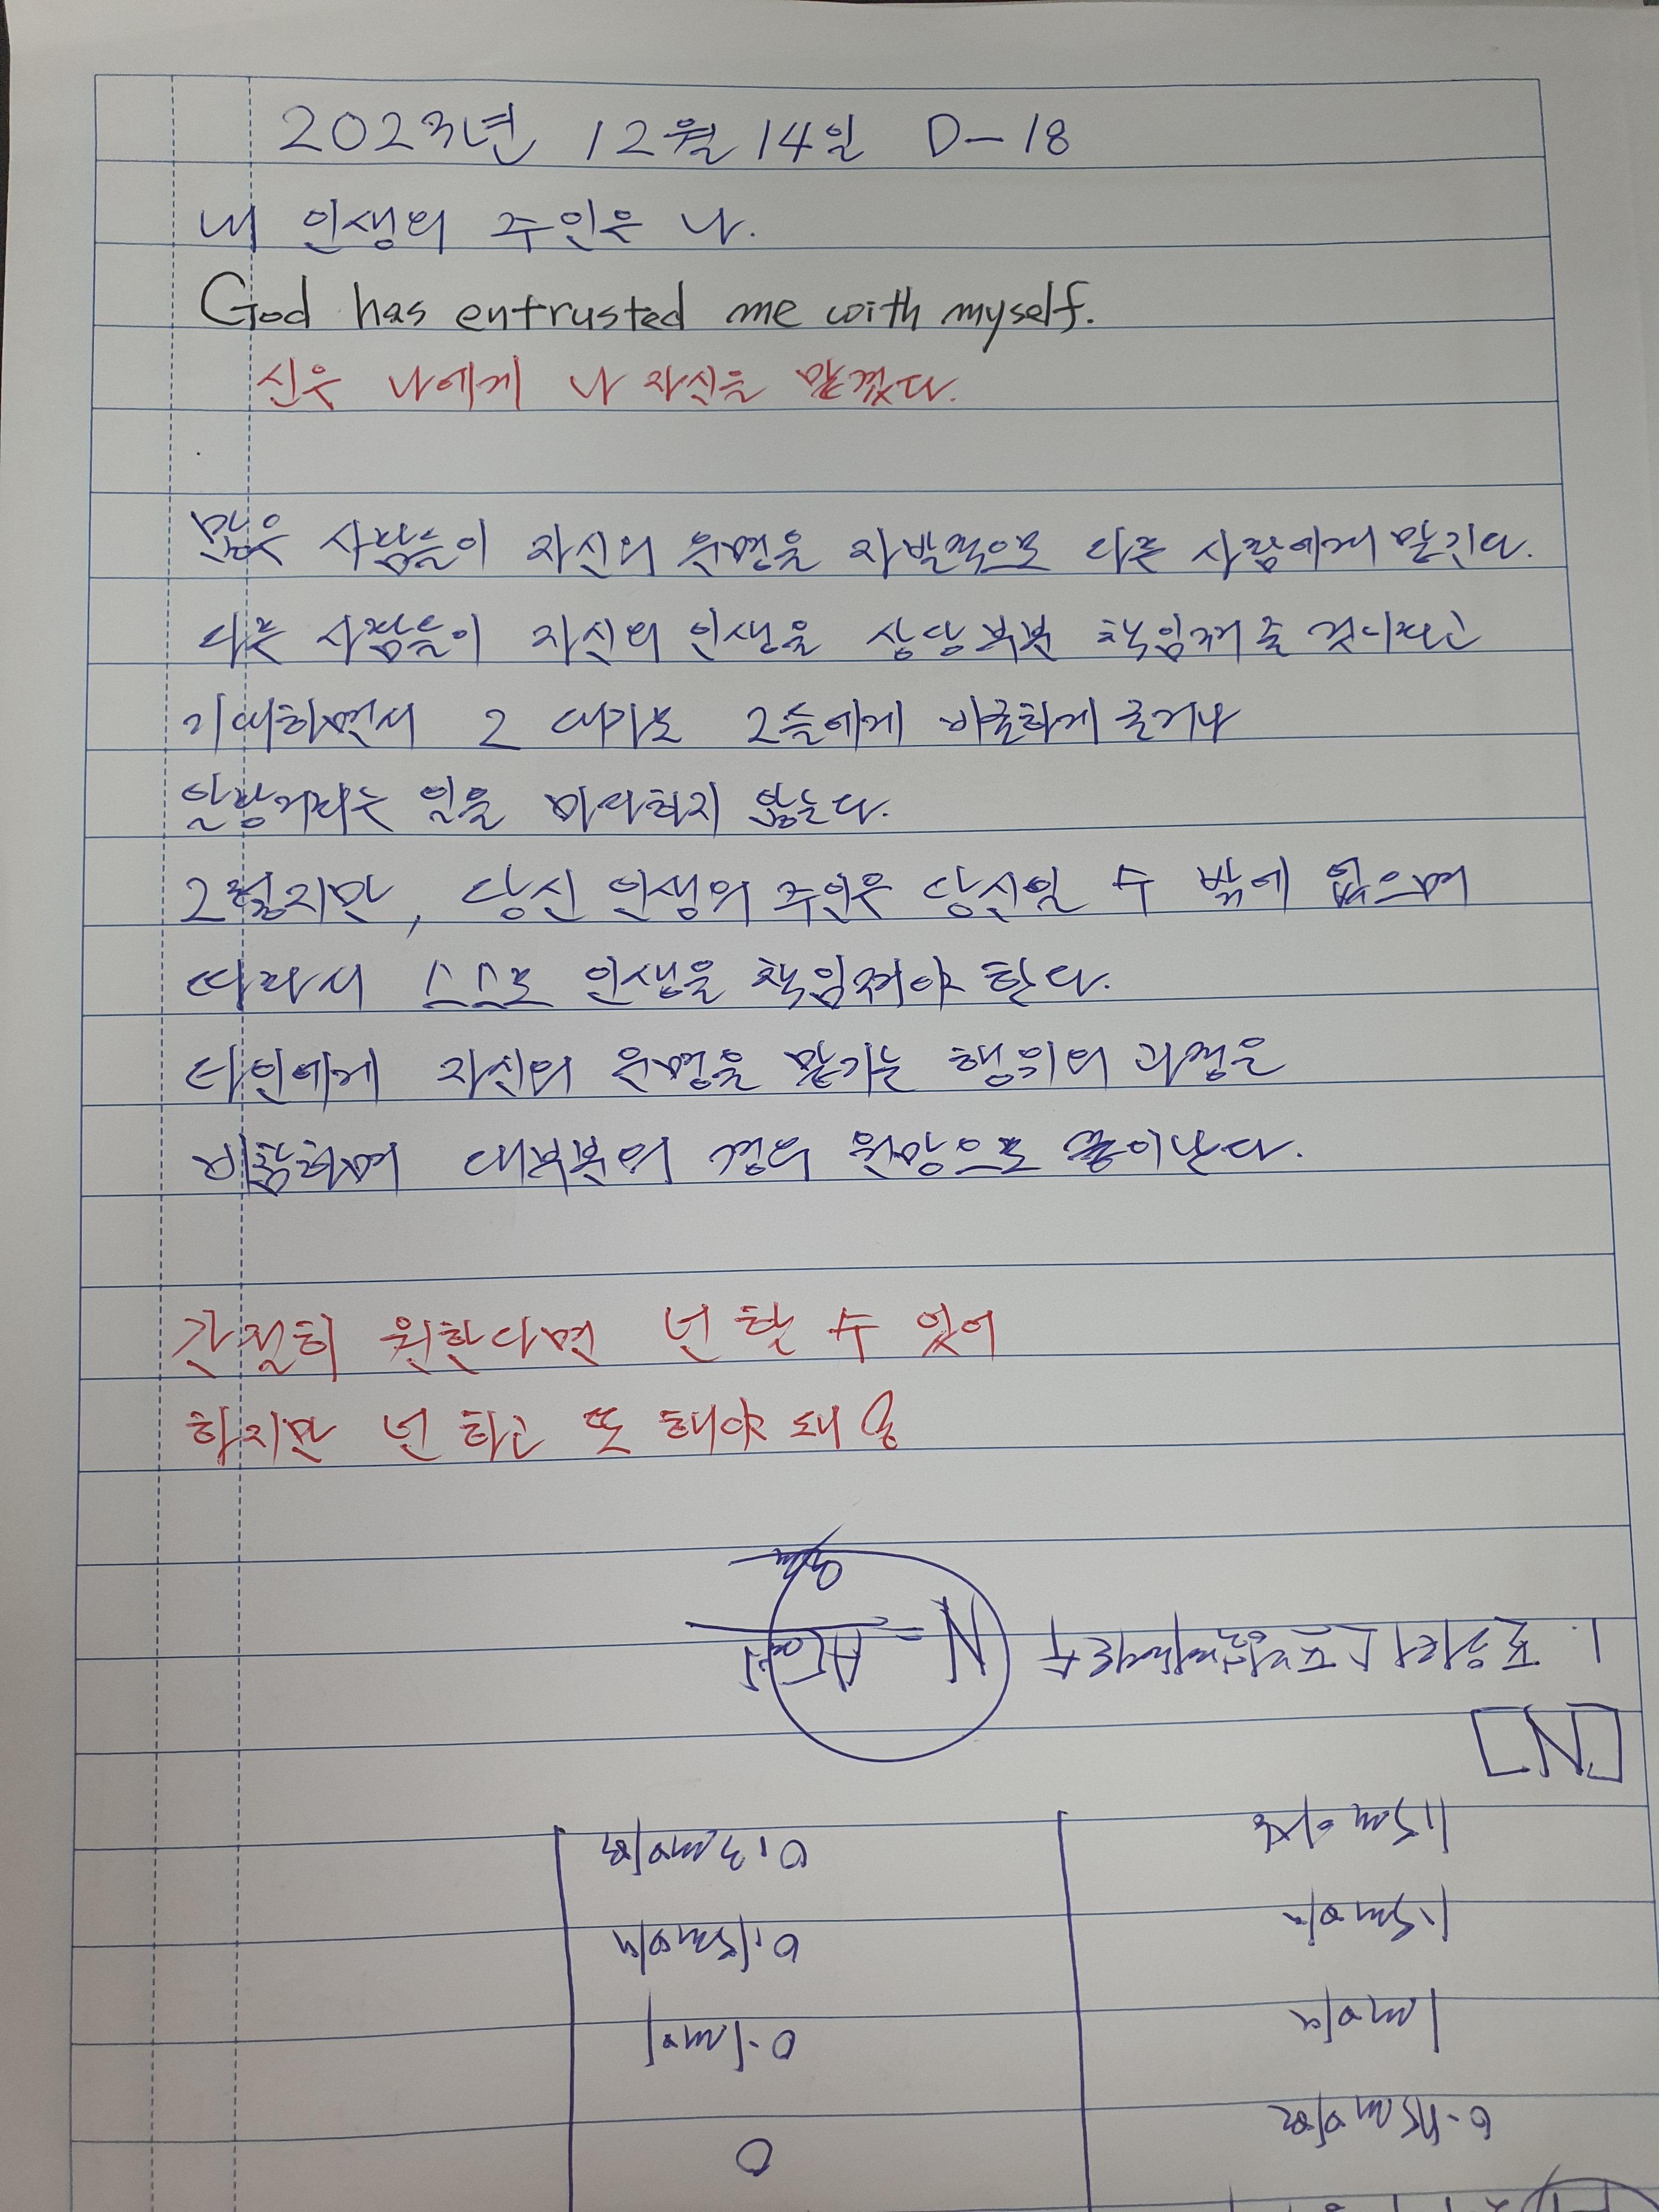 2023년 12월 14일 D-18
내 인생의 주인은 나.
God has entrusted me with myself.
신은 나에게 나 자신을 맡겼다.
많은 사람들이 자신의 운명을 자발적으로 다른 사람에게 맡긴다.
다른 사람들이 자신의 인생을 상당부분 책임져 줄 것이라고
기대하면서 그 대가로 그들에게 비굴하게 굴거나
알랑거리는 일을 마다하지 않는다.
그렇지만, 당신 인생의 주인은 당신일 수 밖에 없으며
따라서 스스로 인생을 책임져야 한다.
타인에게 자신의 운명을 맡기는 행위의 과정은
비참하며 대부분의 경우 원망으로 끝이난다.
간절히 원한다면 넌 할 수 있어
하지만 넌 하고 또 해야 돼
0
0.1mm이
0.15mm이하
0.3mm이하
1mm이하
1.5mm이하
[N]
1.
N =